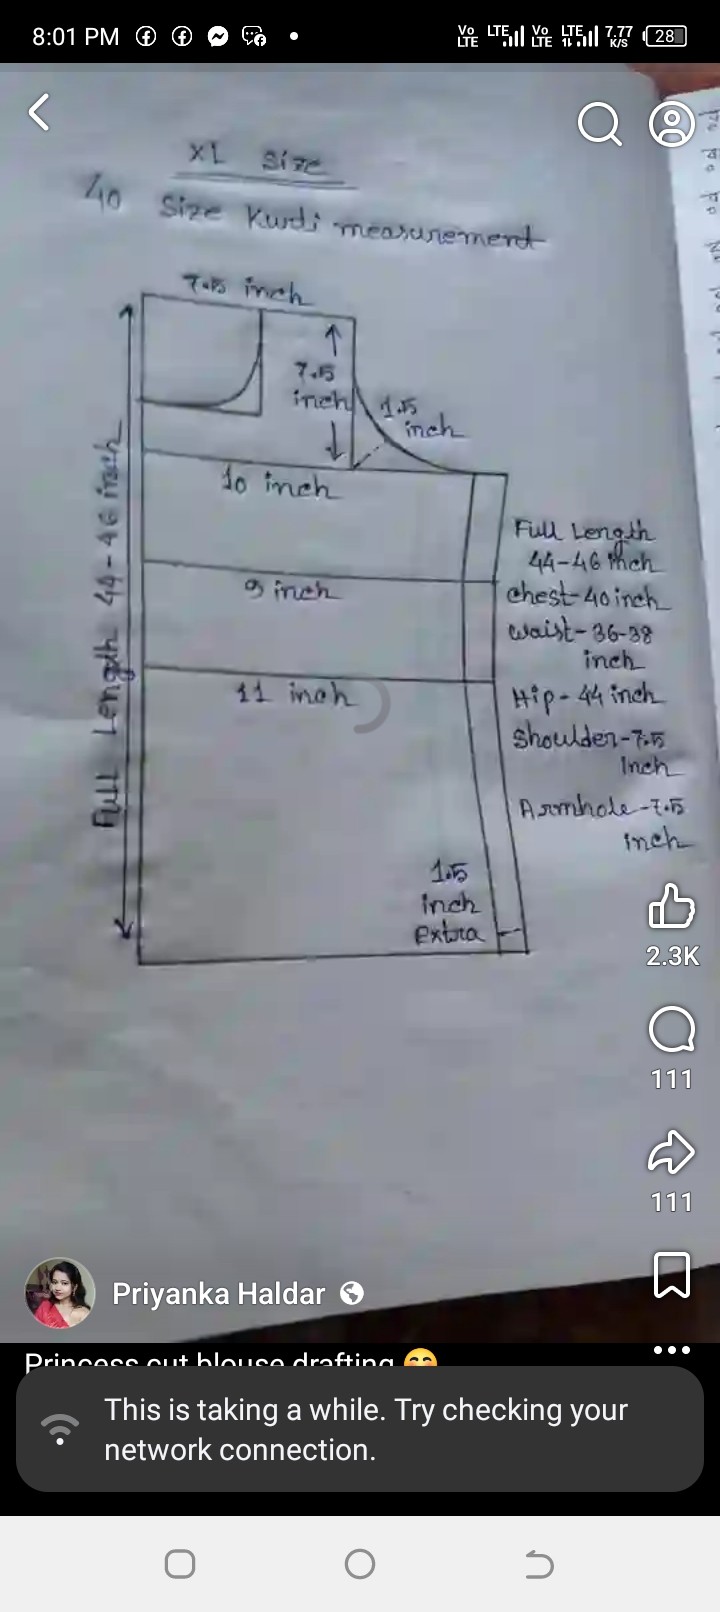 8:01 PM
Vo LTE LTE Vo LTE LTE 7.77 K/S 28
XL Size
40 Size Kurti measurement
7.5 inch
7.5
inch
1.5
inch
10 inch
9 inch
11 inch
Full Length 44-46 inch
1.5
inch
Extra
Full Length
44-46 inch
chest-40 inch
waist-36-38
inch
Hip-44 inch
Shoulder-7.5
Inch
Armhole-7.5
inch
2.3K
111
111
Priyanka Haldar
Princess cut blouse drafting 😊
This is taking a while. Try checking your
network connection.